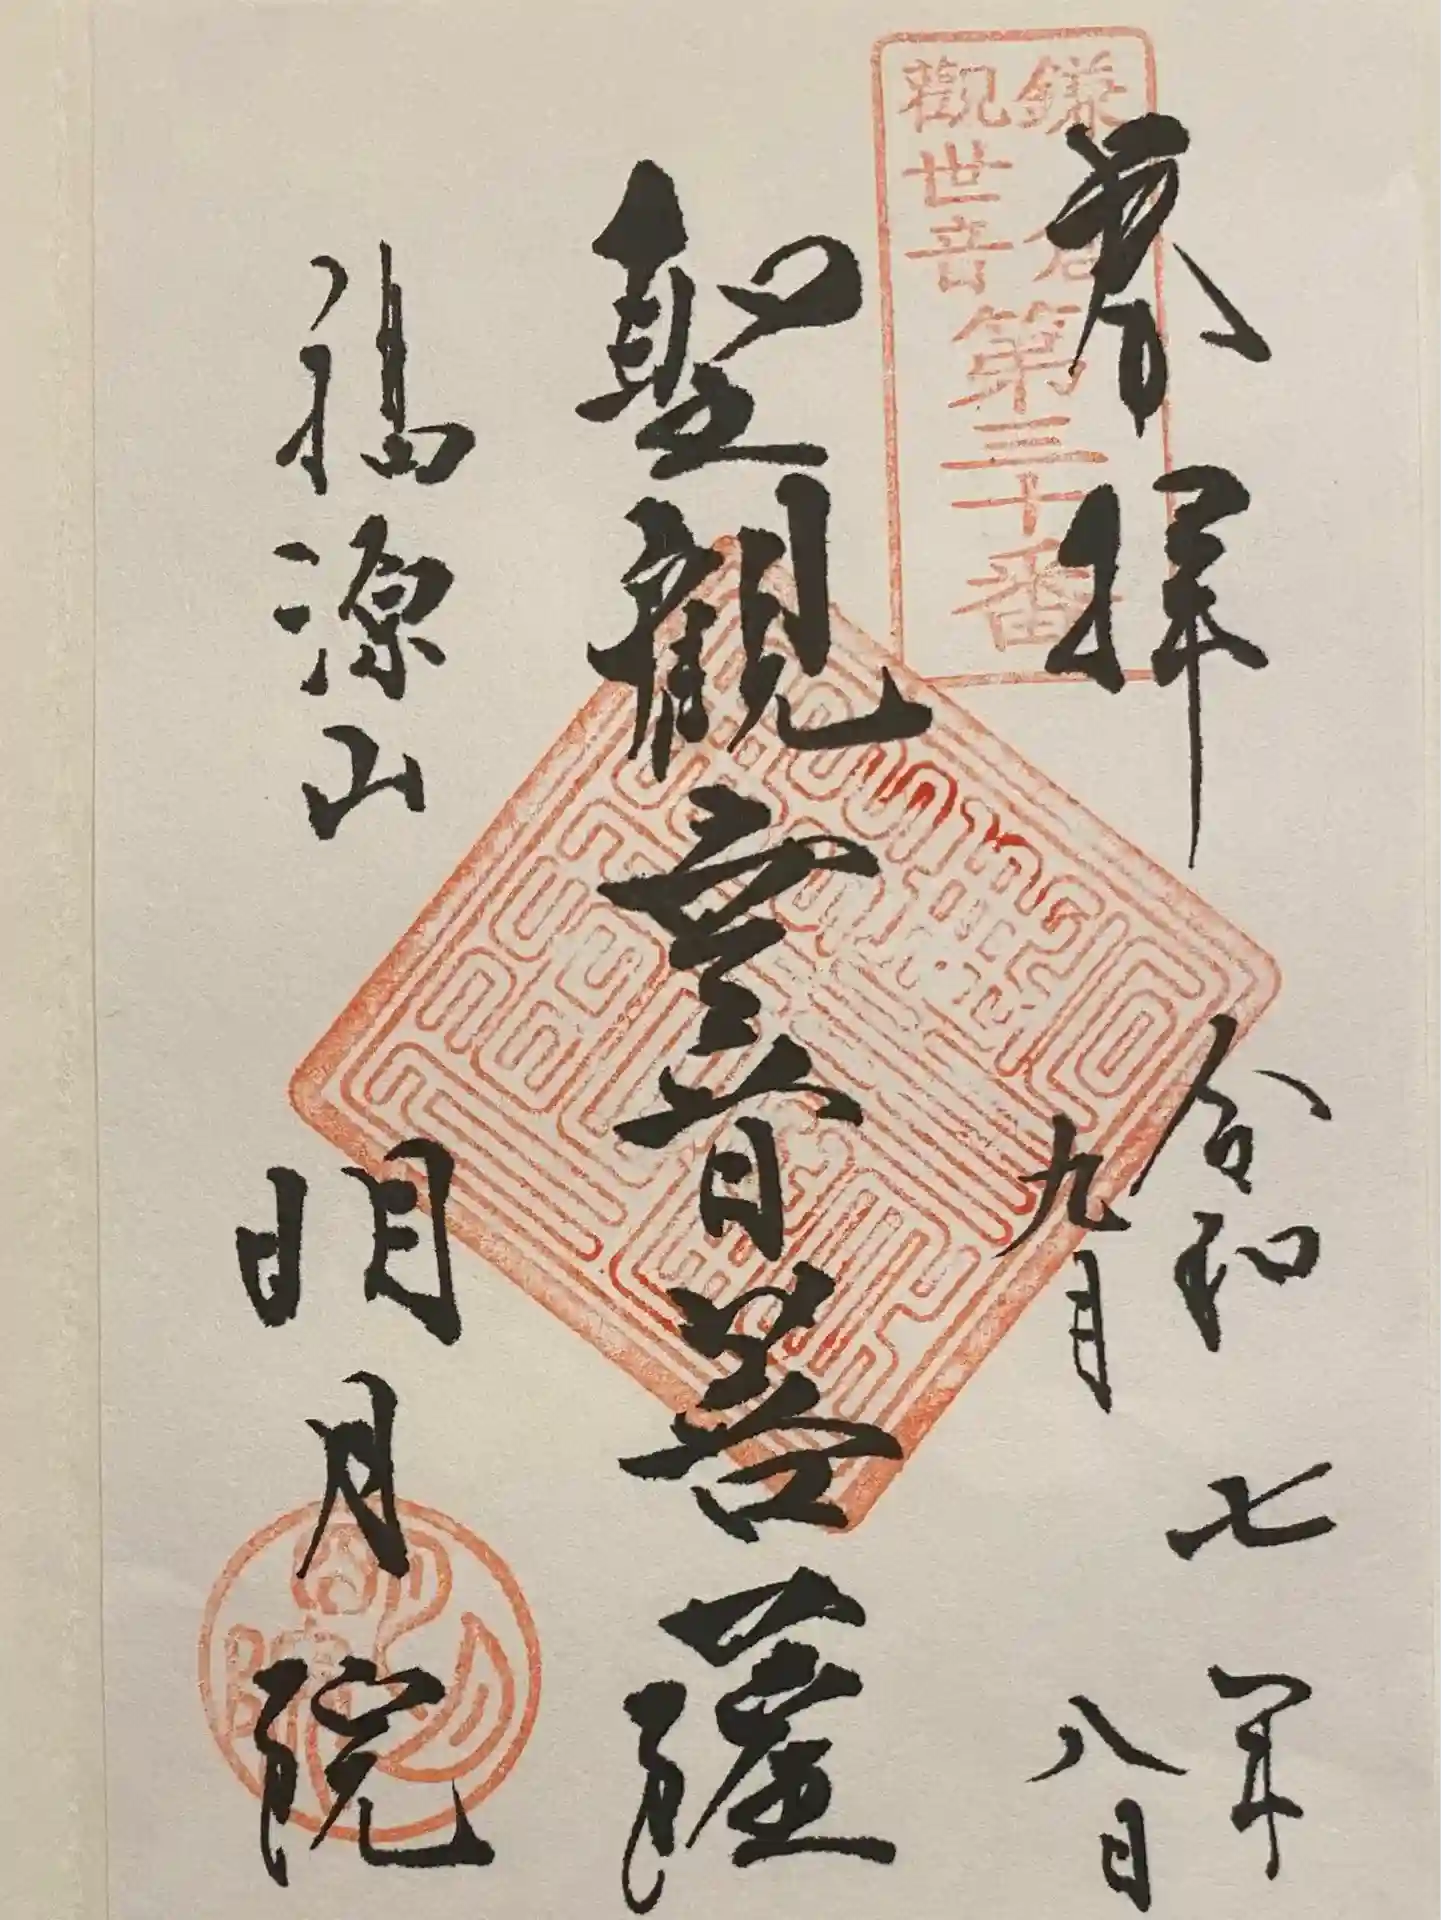 奉拝
令和七年
九月八日
鎌倉
觀世音
第三十番
聖観世音菩薩
福源山
明月院